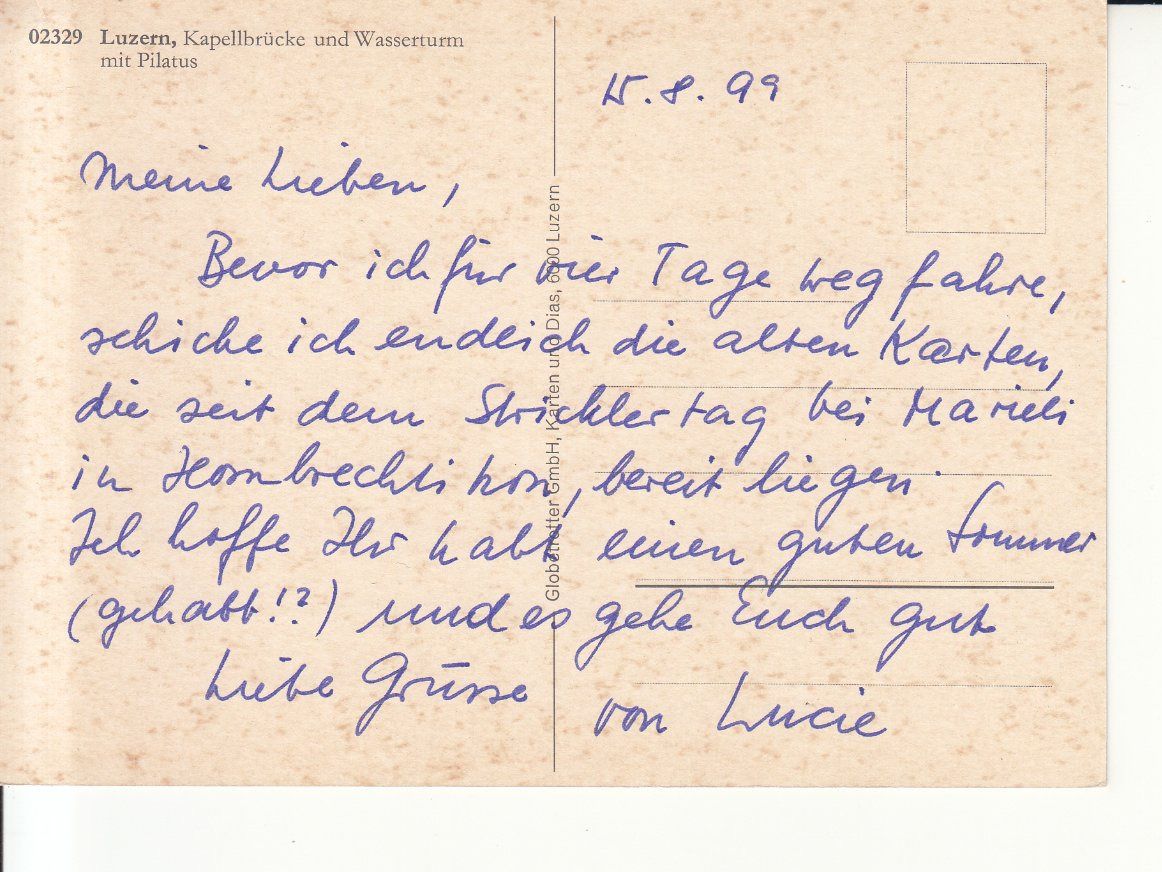 02329 Luzern, Kapellbrücke und Wasserturm
mit Pilatus
15.8.99
Meine Lieben,
Bevor ich für vier Tage weg fahre,
schicke ich endlich die alten Karten,
die seit dem Stricklertag bei Marieli
in Hombrechtikon, bereit liegen.
Ich hoffe Ihr habt einen guten Sommer
(gehabt!?) und es gehe Euch gut
Liebe Grüsse
von Lucie
Globetrotter GmbH, Karten und Dias, 6000 Luzern